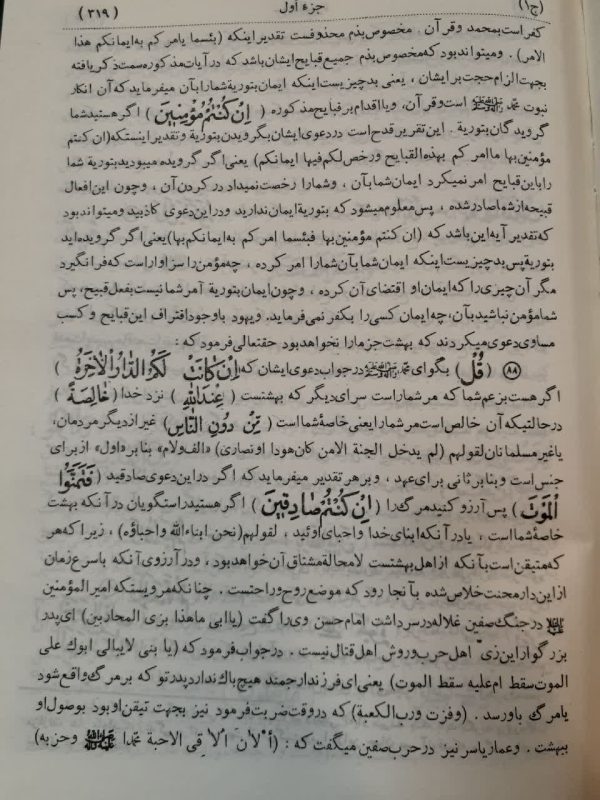 (ج۱) جزء اول (۳۱۹)
کفر است بمحمد و قرآن . مخصوص بذم محذوفست تقدیر اینکه (بئسما یامرکم به ایمانکم هذا
الامر) . و میتواند بود که مخصوص بذم جمیع قبایح ایشان باشد که در آیات مذکوره سمت ذکر یافته
بجهت الزام حجت بر ایشان ، یعنی بد چیزیست اینکه ایمان بتوریة شما را بآن میفرماید که آن انکار
نبوت محمد ﷺ است و قرآن، و یا اقدام بر قبایح مذکوره (اِنْ کُنْتُمْ مُؤْمِنِینَ) اگر هستید شما
گرویدگان بتوریة . این تقریر قدح است در دعوی ایشان بگرویدن بتوریة و تقدیر اینستکه (ان کنتم
مؤمنین بها ما امرکم بهذه القبایح و رخص لکم فیها ایمانکم) یعنی اگر گرویده میبودید بتوریة شما
را باین قبایح امر نمیکرد ایمان شما بآن ، و شما را رخصت نمیداد در کردن آن ، و چون این افعال
قبیحه از شما صادر شده ، پس معلوم میشود که بتوریة ایمان ندارید و در این دعوی کاذبید و میتواند بود
که تقدیر آیه این باشد که (ان کنتم مؤمنین بها فبئسما امرکم به ایمانکم بها) یعنی اگر گرویده اید
بتوریة پس بد چیزیست اینکه ایمان شما بآن شما را امر کرده ، چه مؤمن را سزاوار است که فرا نگیرد
مگر آن چیزی را که ایمان او اقتضای آن کرده ، و چون ایمان بتوریة آمر شما نیست بفعل قبیح، پس
شما مؤمن نباشید بآن، چه ایمان کسی را بکفر نمی فرماید. و یهود با وجود اقتراف این قبایح و کسب
مساوی دعوی میکردند که بهشت جز ما را نخواهد بود حقتعالی فرمود که :
(۸۸) (قُلْ) بگو ای محمد ﷺ در جواب دعوی ایشان که (اِنْ کانَتْ لَکُمُ الدّارُ الْآخِرَةُ)
اگر هست بزعم شما که مر شما راست سرای دیگر که بهشتست (عِنْدَ اللهِ) نزد خدا (خالِصَةً)
در حالتیکه آن خالص است مر شما را یعنی خاصهٔ شما است (مِنْ دُونِ النّاسِ) غیر از دیگر مردمان،
یا غیر مسلمانان لقولهم (لم یدخل الجنة الا من کان هودا او نصاری) «الف و لام» بنابر «اول» از برای
جنس است و بنا بر ثانی برای عهد ، و بر هر تقدیر میفرماید که اگر در این دعوی صادقید (فَتَمَنَّوُا
الْمَوْتَ) پس آرزو کنید مرگ را (اِنْ کُنْتُمْ صادِقینَ) اگر هستید راستگویان در آنکه بهشت
خاصهٔ شما است ، یا در آنکه ابنای خدا و احبای اوئید ، لقولهم (نحن ابناء الله و احباؤه) ، زیرا که هر
که متیقن است بآنکه از اهل بهشتست لا محالة مشتاق آن خواهد بود ، و در آرزوی آنکه باسرع زمان
از این دار محنت خلاص شده بآنجا رود که موضع روح و راحتست . چنانکه مرویستکه امیرالمؤمنین
در جنگ صفین غلاله در سر داشت امام حسن وی را گفت (یا ابی ما هذا بزی المحاربین) ای پدر
بزرگوار این زی اهل حرب و روش اهل قتال نیست . در جواب فرمود که (یا بنی لا یبالی ابوک علی
الموت سقط ام علیه سقط الموت) یعنی ای فرزند ارجمند هیچ باک ندارد پدر تو که بر مرگ واقع شود
یا مرگ باو رسد . (و فزت و رب الکعبة) که در وقت ضربت فرمود نیز بجهت تیقن او بود بوصول او
ببهشت . و عمار یاسر نیز در حرب صفین میگفت که : (الآن الاقی الاحبة محمدا ﷺ و حزبه)